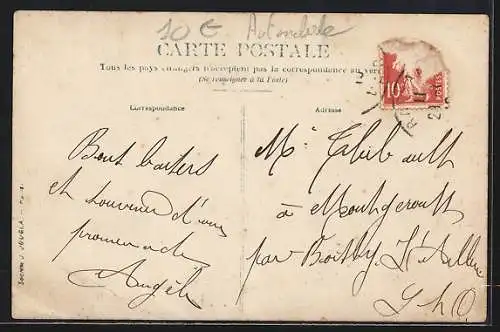 10 € Automobile
CARTE POSTALE
Tous les pays étrangers n'acceptent pas la correspondance au verso
(Se renseigner à la Poste)
Correspondance
Adresse
10c
POSTES
Bons baisers
et souvenir d'une
promenade
Angèle
Mr Thibault
à Montgeroult
par Boissy l'Aillerie
S & O
J. JOUGLA